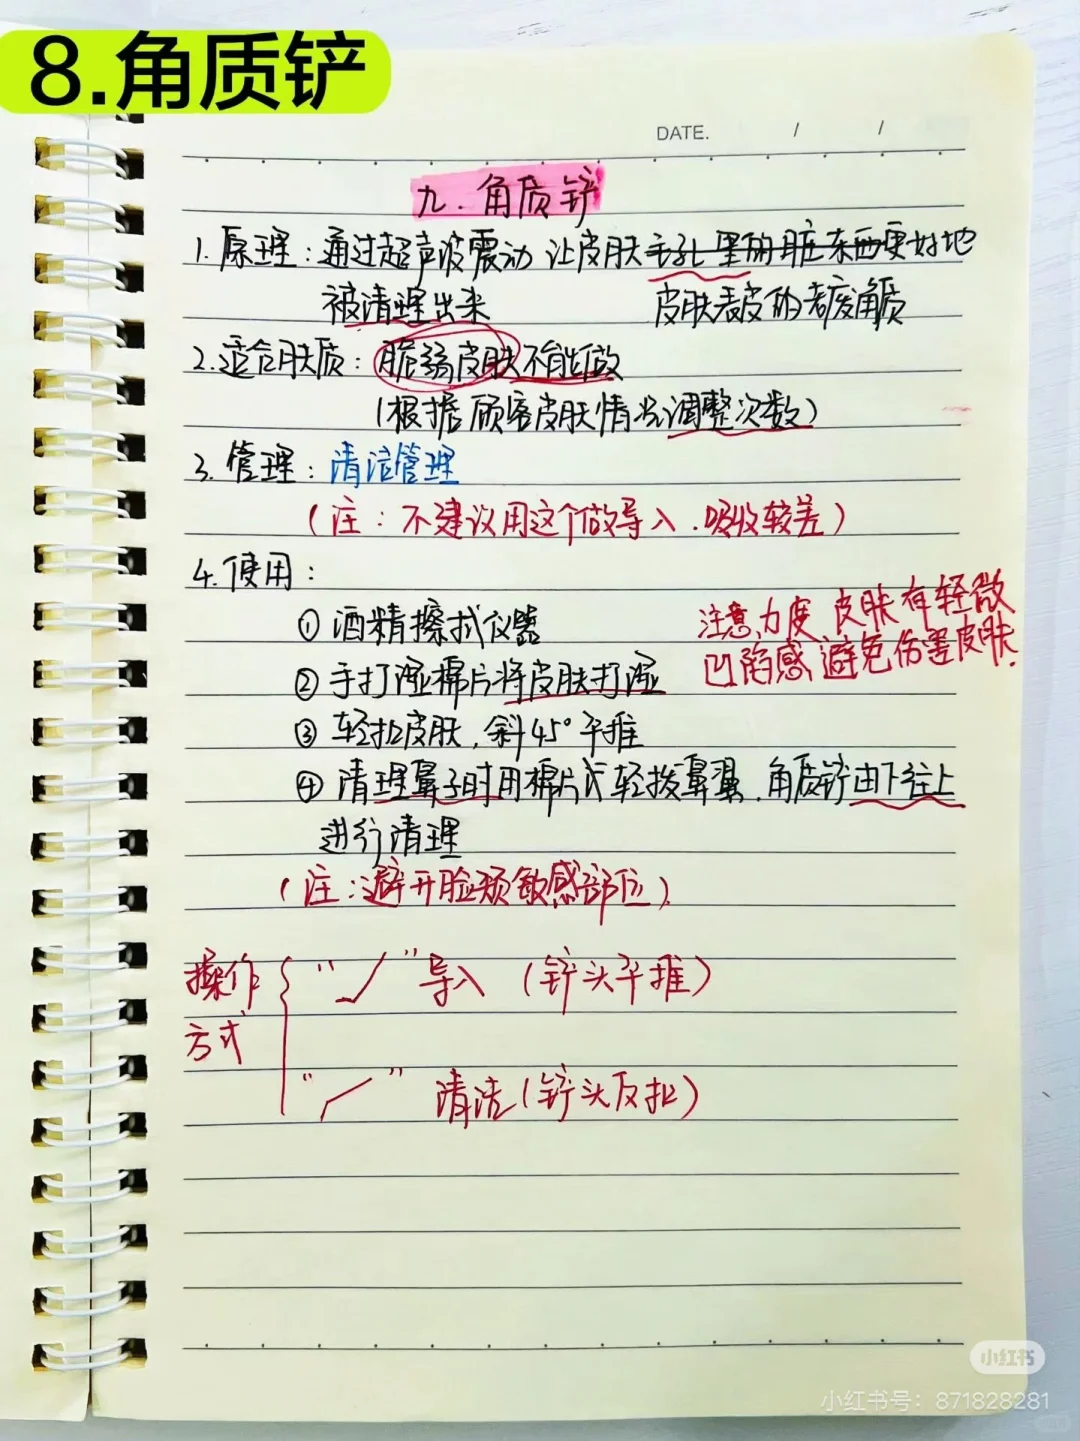 8.角质铲
DATE. / /
九.角质铲
1.原理：通过超声波震动 让皮肤毛孔里的脏东西更好地
被清理出来 皮肤表皮的老废角质
2.适合肤质：脆弱皮肤不能做
(根据顾客皮肤情况调整次数)
3.管理：清洁管理
(注：不建议用这个做导入.吸收较差)
4.使用：
①酒精擦拭仪器
注意力度 皮肤有轻微
凹陷感,避免伤害皮肤.
②手打湿棉片将皮肤打湿
③轻拉皮肤,斜45°平推
④清理鼻子时用棉片轻拨鼻翼.角质铲由下往上
进行清理
(注:避开脸颊敏感部位)
操作
方式
“ ”导入(铲头平推)
“ ”清洁(铲头反扯)
小红书
小红书号：871828281